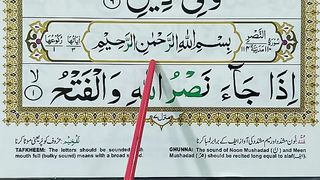 وَلِيَ دِيْنِ
سُوْرَةُ النَّصْرِ
بِسْمِ اللهِ الرَّحْمٰنِ الرَّحِيْمِ
اٰيَاتُهَا ٣
رُكُوْعُهَا ١
اِذَا جَآءَ نَصْرُ اللهِ وَالْفَتْحُ ۙ ١
منزل ٧
TAFKHEEM: The letters should be sounded with mouth full (bulky sound) means with a broad sound.
GHUNNA: The sound of Noon Mushadad (نّ) and Meem Mushadad (مّ) should be recited long equal to alaf(ا).